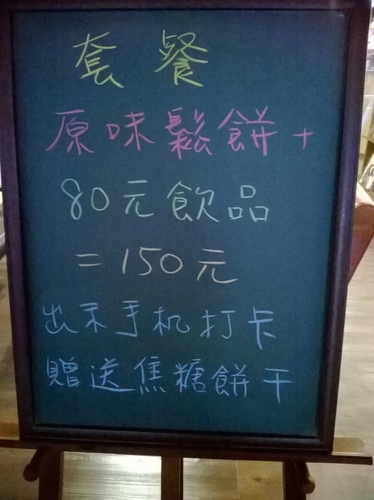 套餐
原味鬆餅+
80元飲品
=150元
出示手机打卡
贈送焦糖餅干